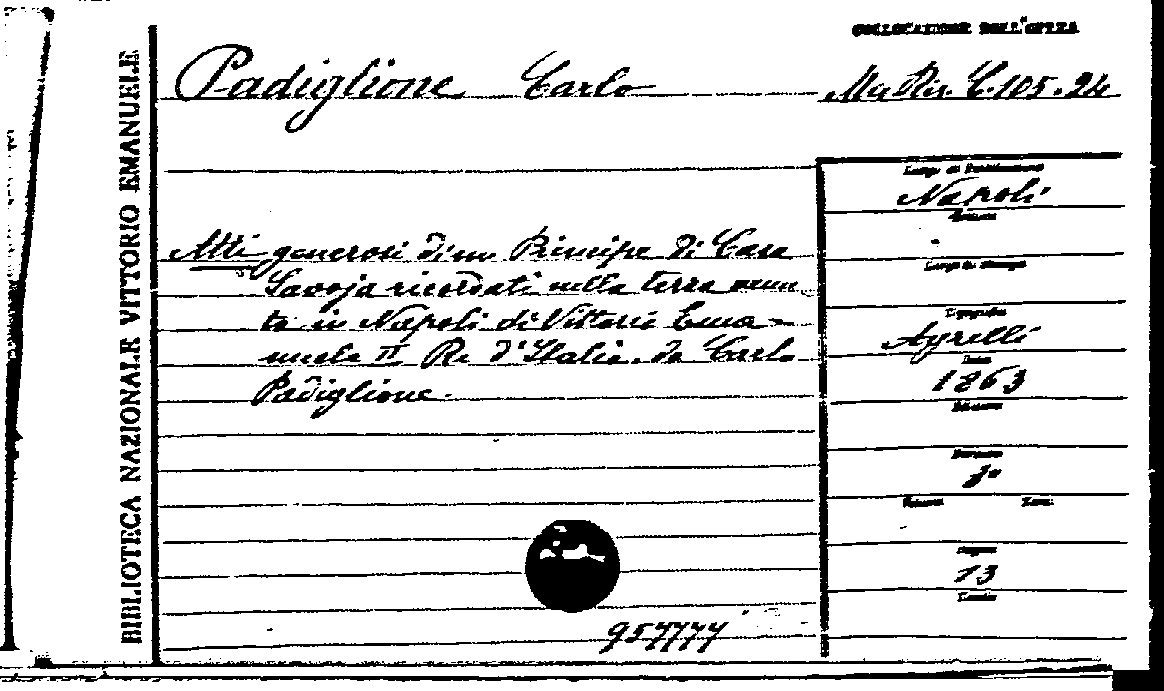 COLLOCAZIONE DELL'OPERA
BIBLIOTECA NAZIONALE VITTORIO EMANUELE
Padiglione Carlo
Mis Ris. C. 105. 24
Luogo di Pubblicazione
Napoli
Editore
Luogo di stampa
Atti generosi di un Principe di Casa
Savoja ricordati nella terza venu
ta in Napoli di Vittorio Ema-
nuele II Re d'Italia. da Carlo
Padiglione.
Tipografia
Agrelli
Data
1863
Edizione
Formato
8°
Volumi
Tomi
Pagine
13
Tavole
957777